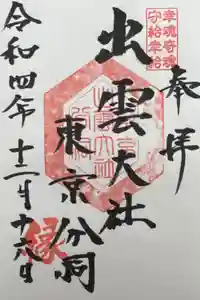 奉拝
幸魂奇魂
守給幸給
出雲大社
東京分祠
令和四年十二月十六日
縁